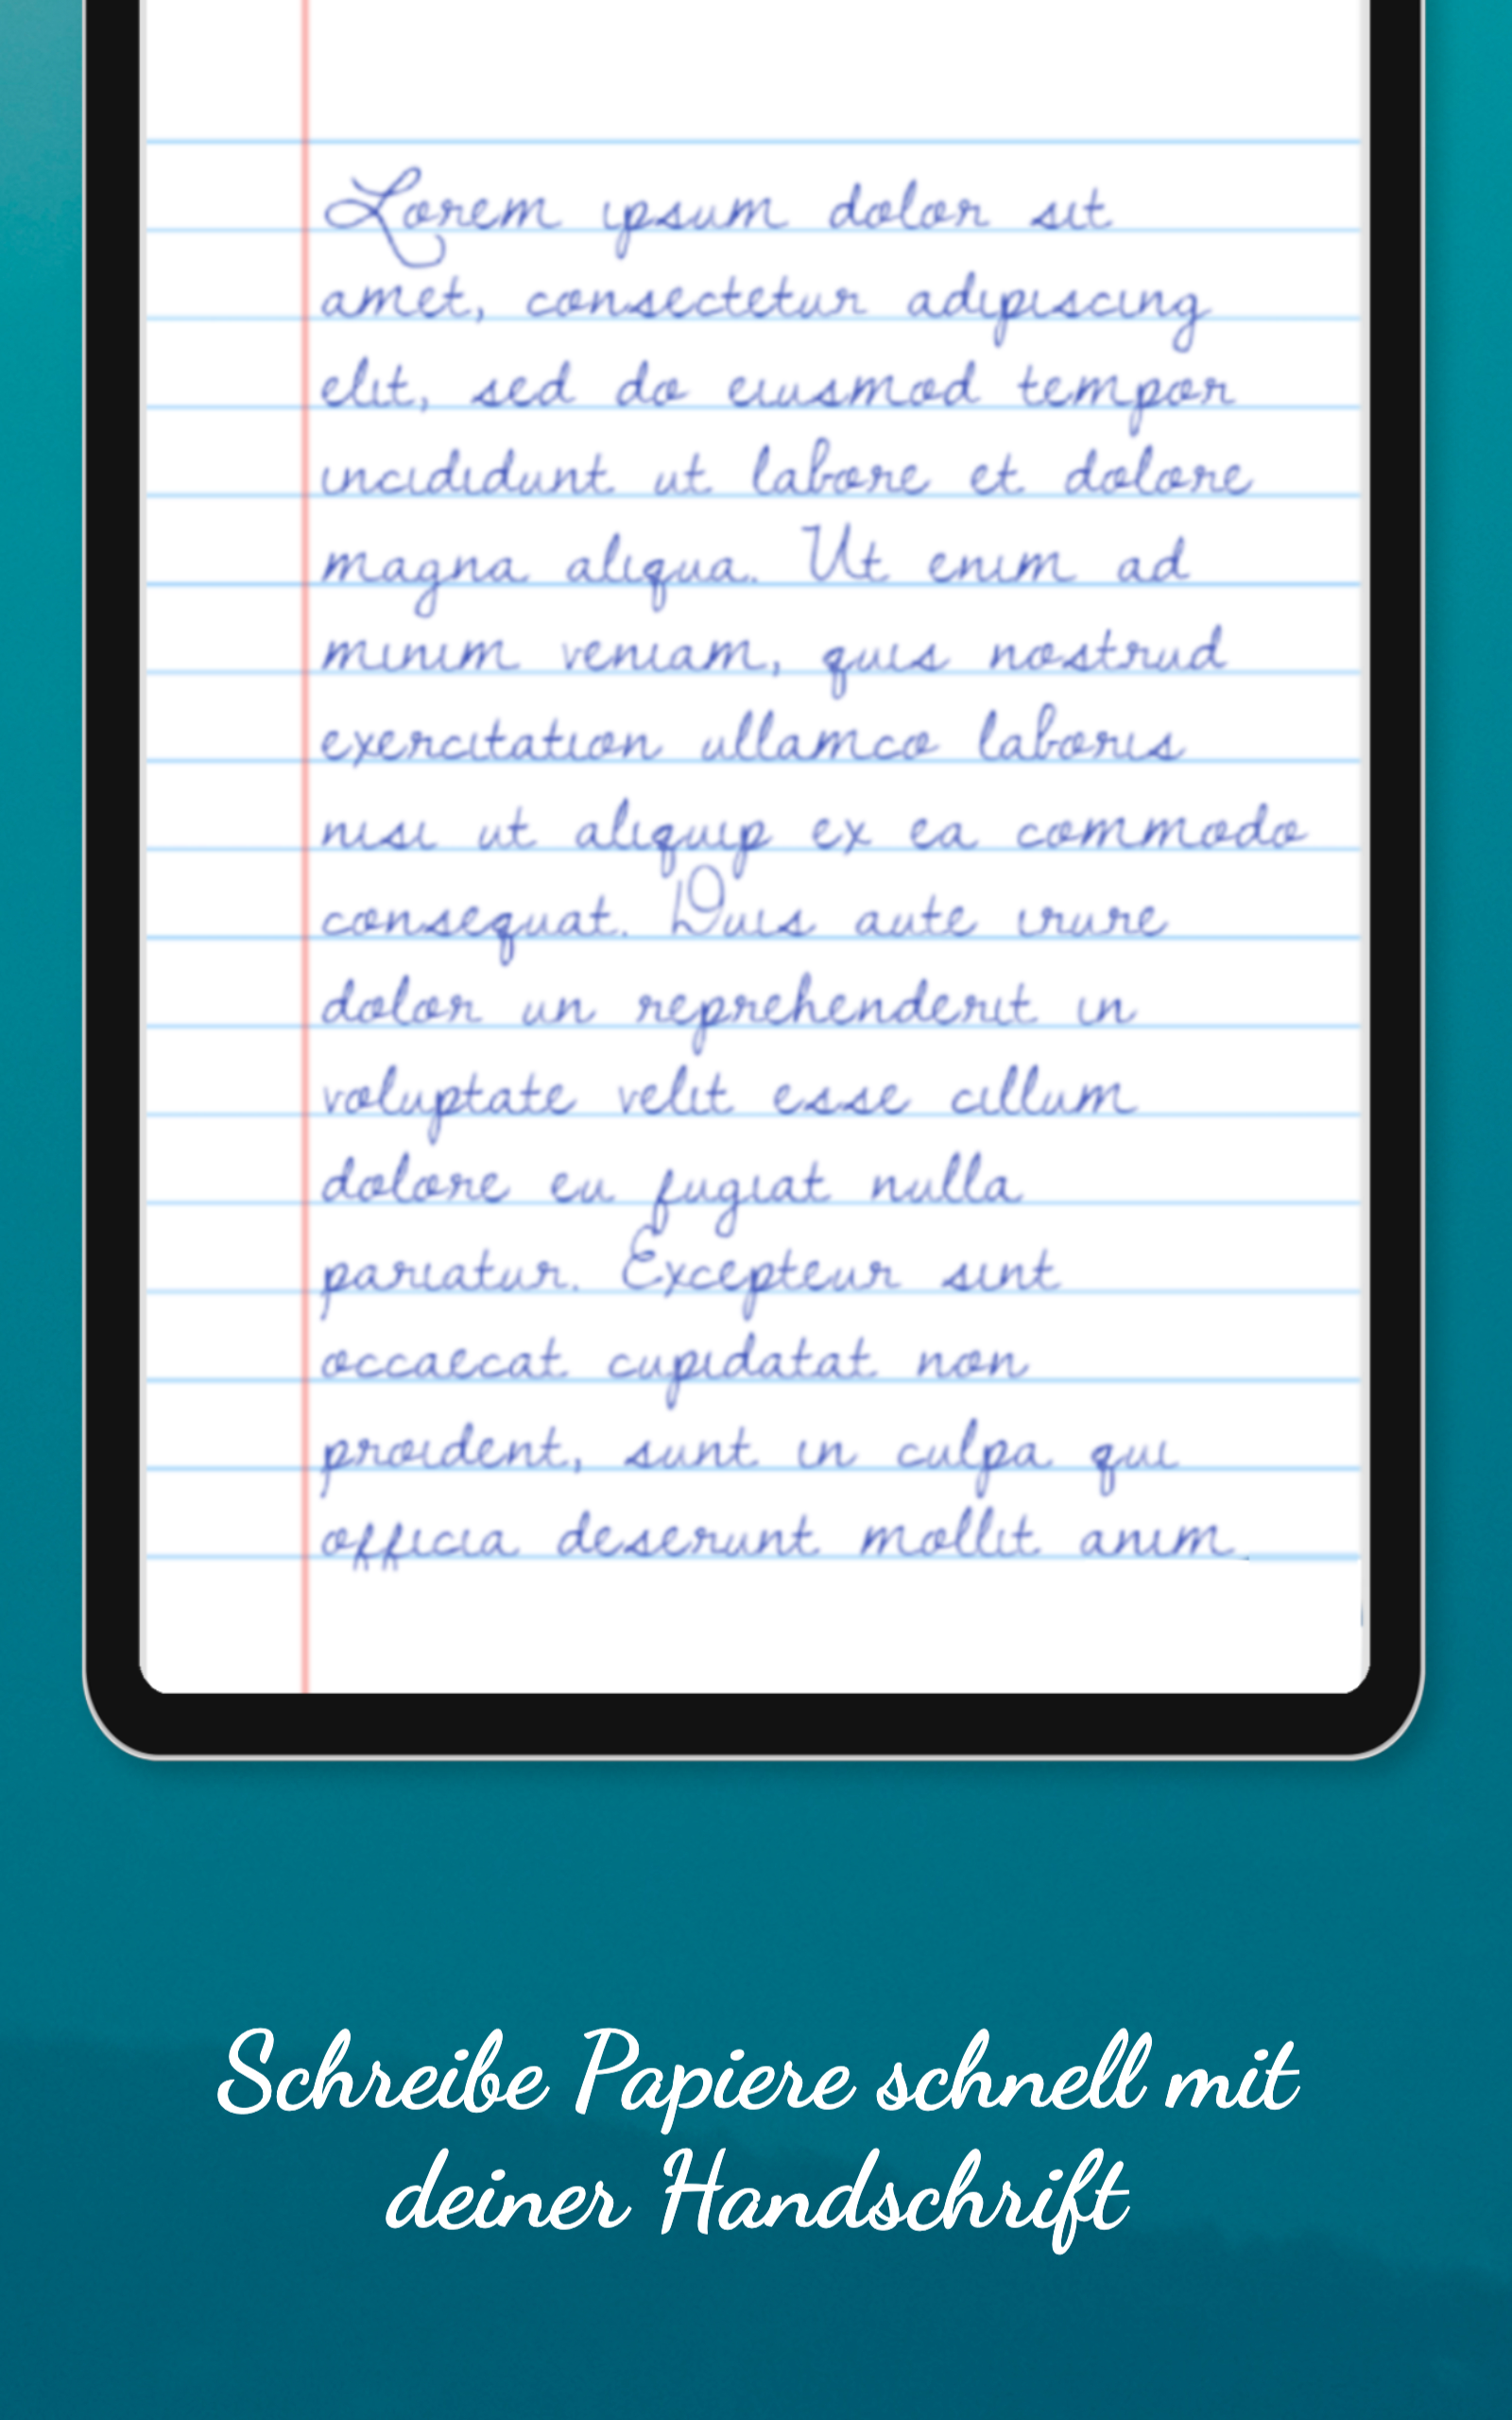 Lorem ipsum dolor sit
amet, consectetur adipiscing
elit, sed do eiusmod tempor
incididunt ut labore et dolore
magna aliqua. Ut enim ad
minim veniam, quis nostrud
exercitation ullamco laboris
nisi ut aliquip ex ea commodo
consequat. Duis aute irure
dolor in reprehenderit in
voluptate velit esse cillum
dolore eu fugiat nulla
pariatur. Excepteur sint
occaecat cupidatat non
proident, sunt in culpa qui
officia deserunt mollit anim
Schreibe Papiere schnell mit
deiner Handschrift